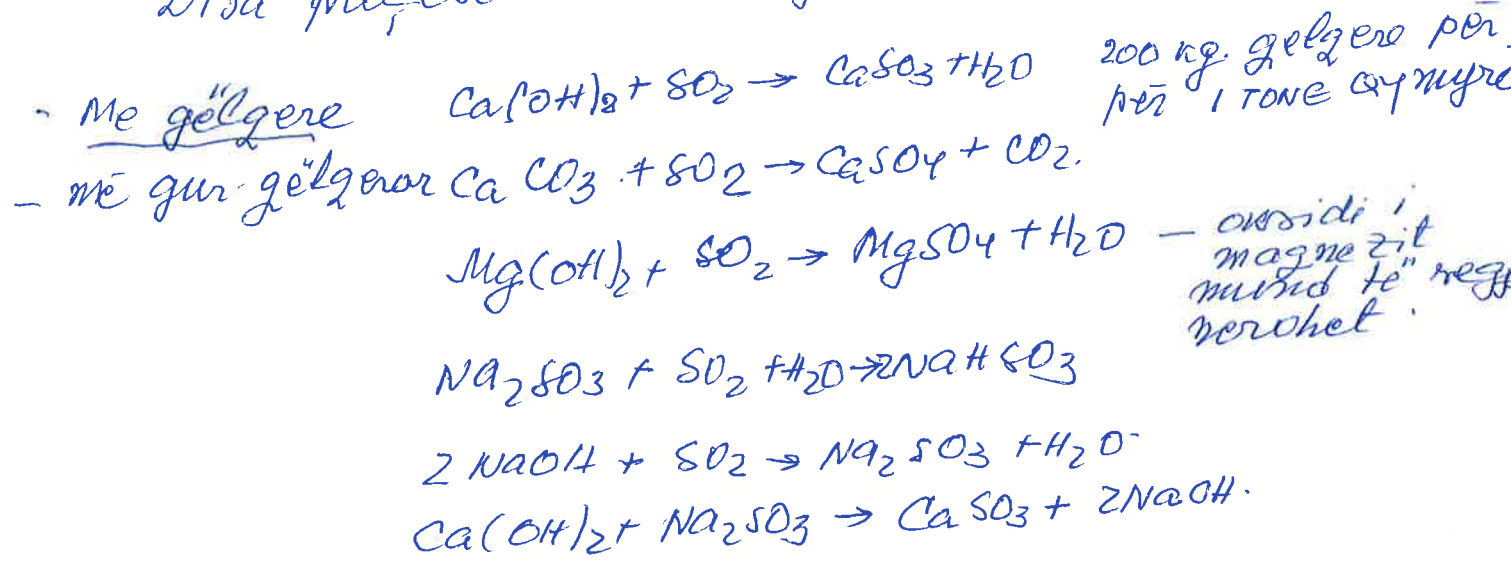 Disa
- Me gëlqere Ca(OH)2 + SO2 → CaSO3 + H2O 200 kg. gelqere për
për 1 TONE qymyr
- më gur gëlqeror CaCO3 + SO2 → CaSO4 + CO2.
Mg(OH)2 + SO2 → MgSO4 + H2O — oksidi i
magnezit
mund të reg
nerohet.
Na2SO3 + SO2 + H2O → 2NaHSO3
2 NaOH + SO2 → Na2SO3 + H2O
Ca(OH)2 + Na2SO3 → CaSO3 + 2NaOH.